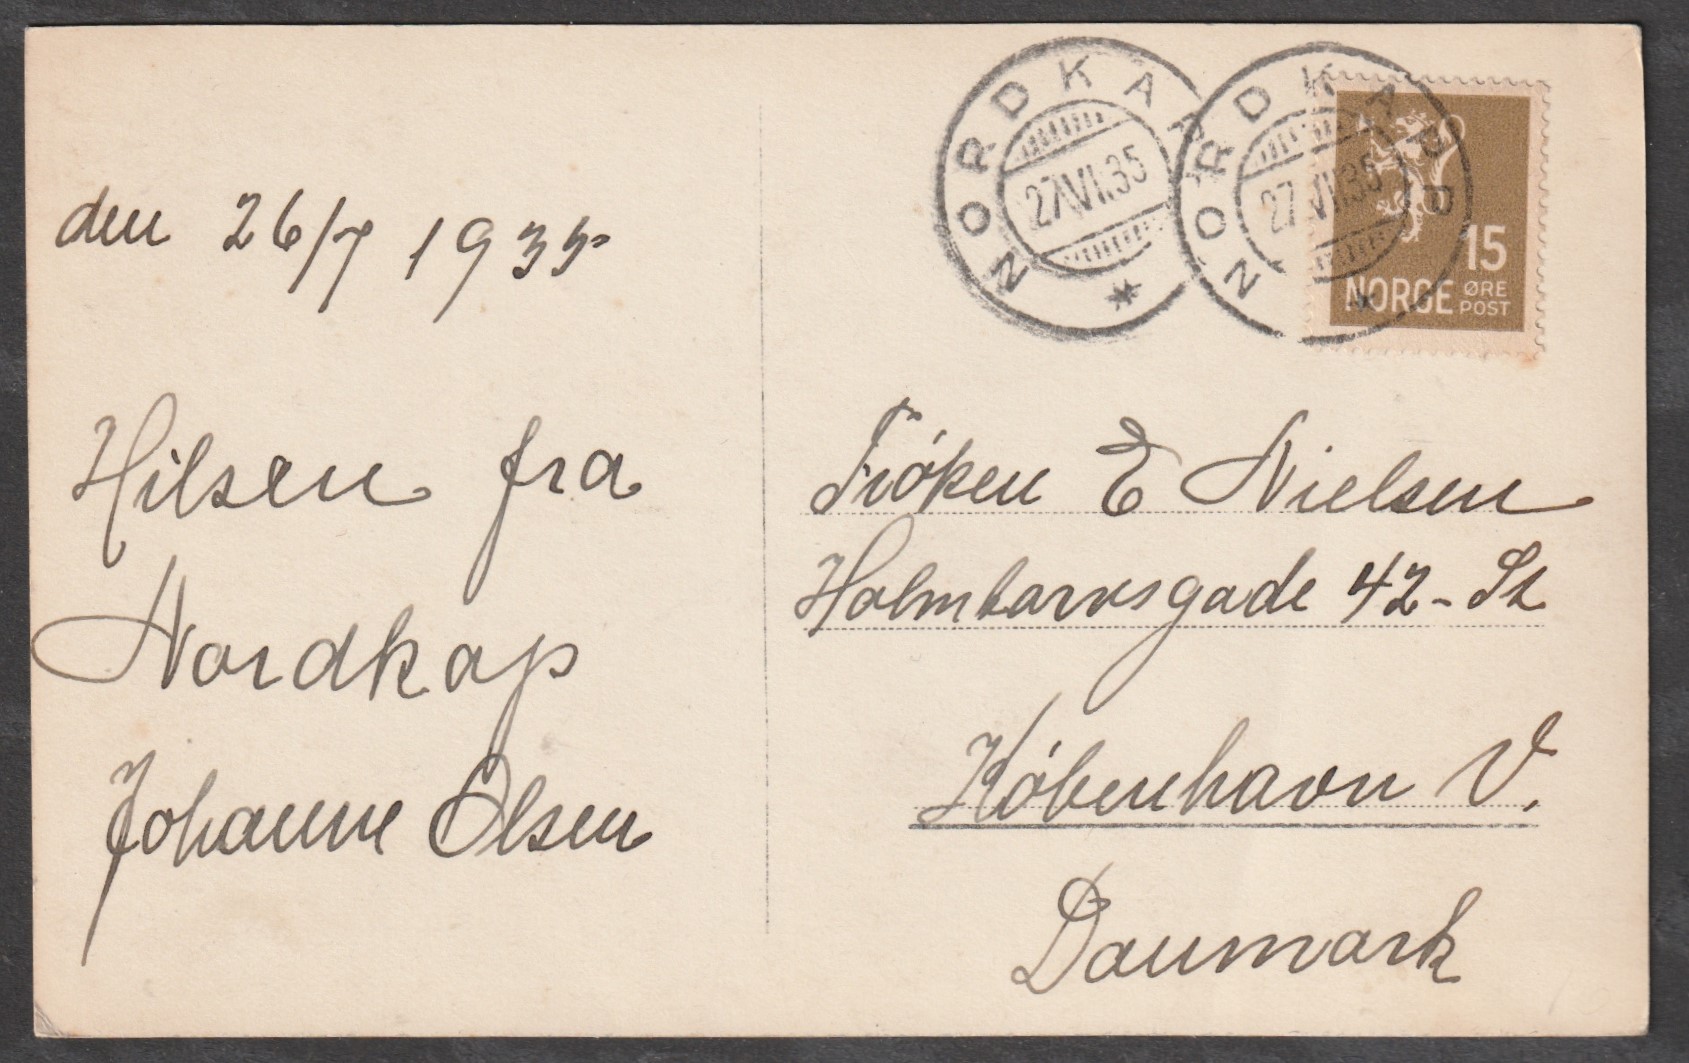 den 26/7 1935
Hilsen fra
Nordkap
Johanne Olsen
NORDKAPP
27.VII.35
NORDKAPP
27.VII.35
15
NORGE ØRE
POST
Frøken E Nielsen
Holmbarvsgade 42 - St
København V.
Danmark